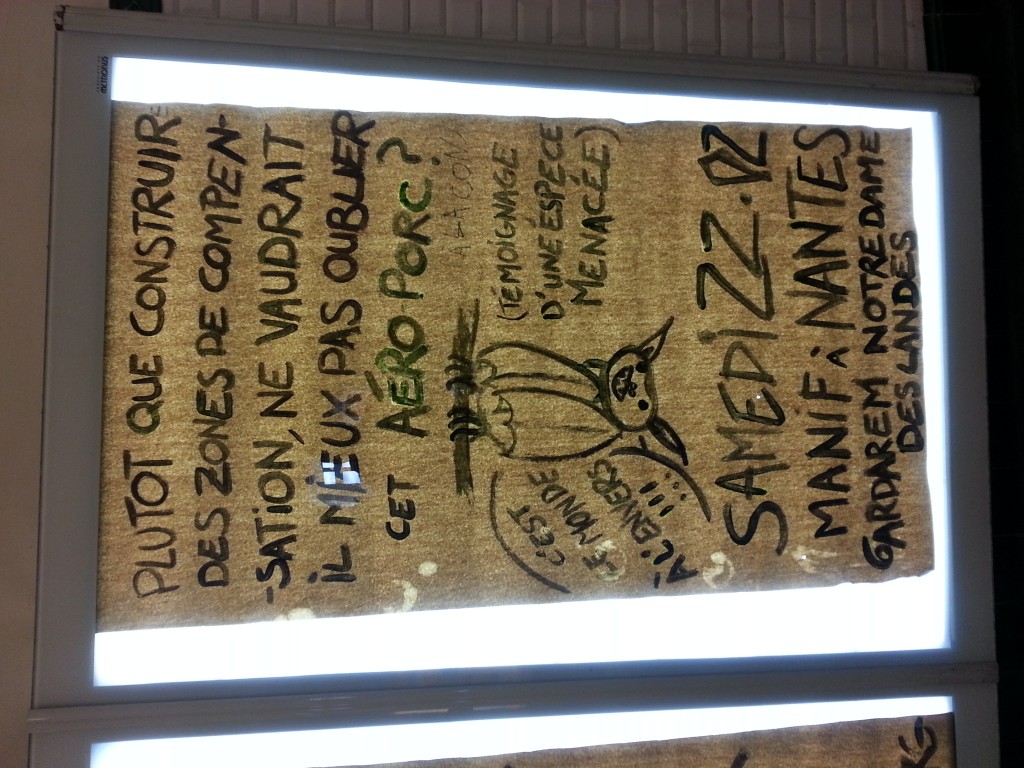 PLUTOT QUE CONSTRUIRE
DES ZONES DE COMPEN-
-SATION, NE VAUDRAIT
IL MIEUX PAS OUBLIER
CET AÉROPORC?
(TÉMOIGNAGE
D'UNE ÉSPÈCE
MENACÉE)
C'EST
LE MONDE
A L'ENVERS
!!!...
SAMEDI 22.02
MANIF À NANTES
GARDAREM NOTRE DAME
DES LANDES